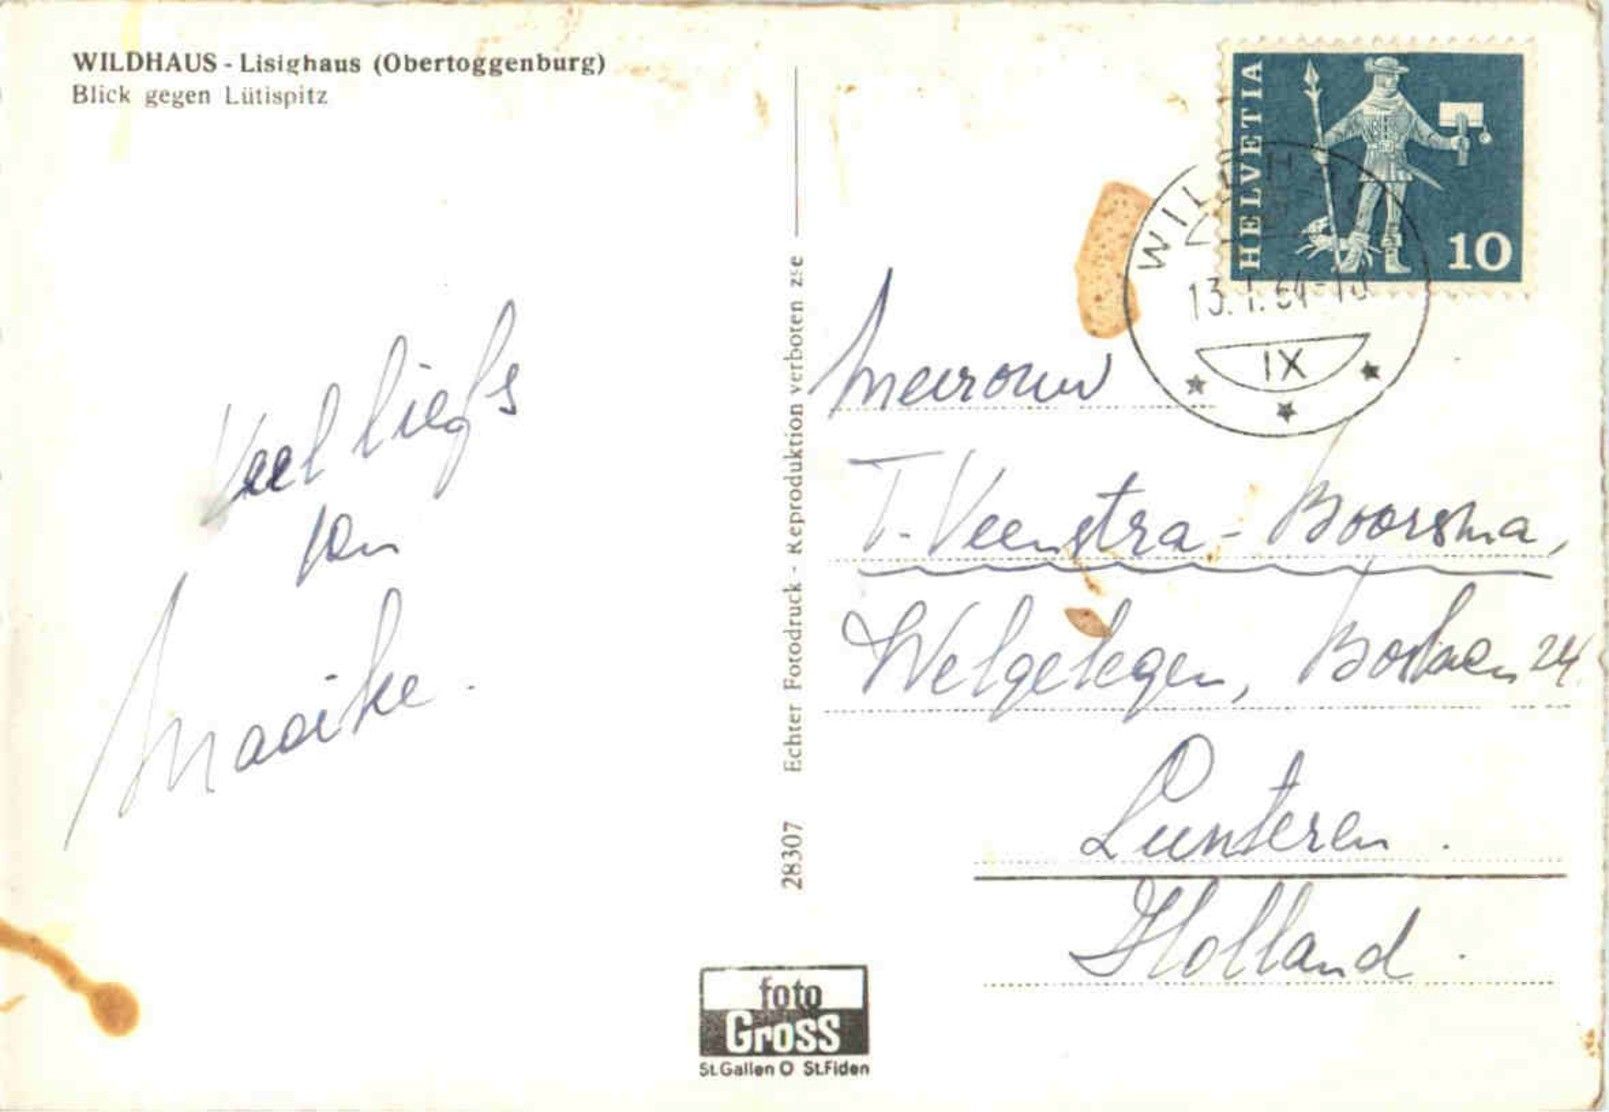 WILDHAUS - Lisighaus (Obertoggenburg)
Blick gegen Lütispitz
Veel liefs
van
Maaike.
28307 Echter Fotodruck - Reproduktion verboten
foto
Gross
St.Gallen O St.Fiden
HELVETIA
10
WILDH
13. 1. 64-18
IX
Mevrouw
T. Veenstra-Boorsma,
Welgelegen, 24
Lunteren.
Holland.